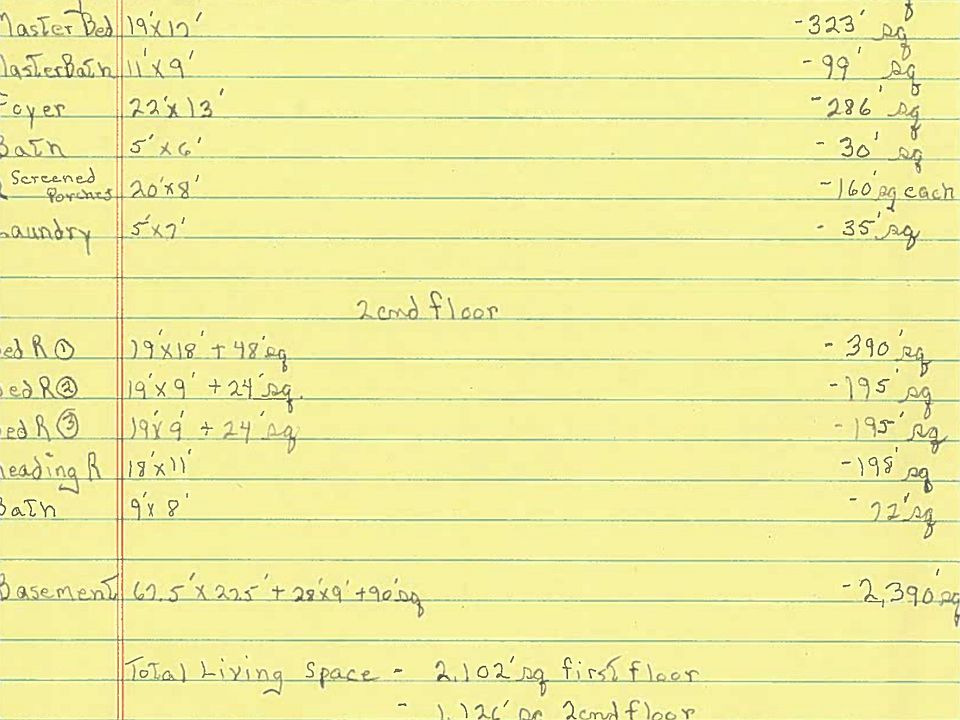 Master Bed 19'x17' -323' sq
MasterBath 11'x9' -99' sq
Foyer 22'x13' -286' sq
Bath 5'x6' -30' sq
2 Screened Porches 20'x8' -160'sq each
Laundry 5'x7' -35'sq
2cnd floor
Bed R① 19'x18' + 48'sq -390'sq
Bed R② 19'x9' +24'sq. -195'sq
Bed R③ 19'x9' +24'sq -195'sq
Reading R 18'x11' -198'sq
Bath 9'x8' -72'sq
Basement 67.5'x22.5' + 28'x9' +90'sq -2,390'sq
Total Living Space - 2,102'sq first floor
- 1,126' sq 2cnd floor